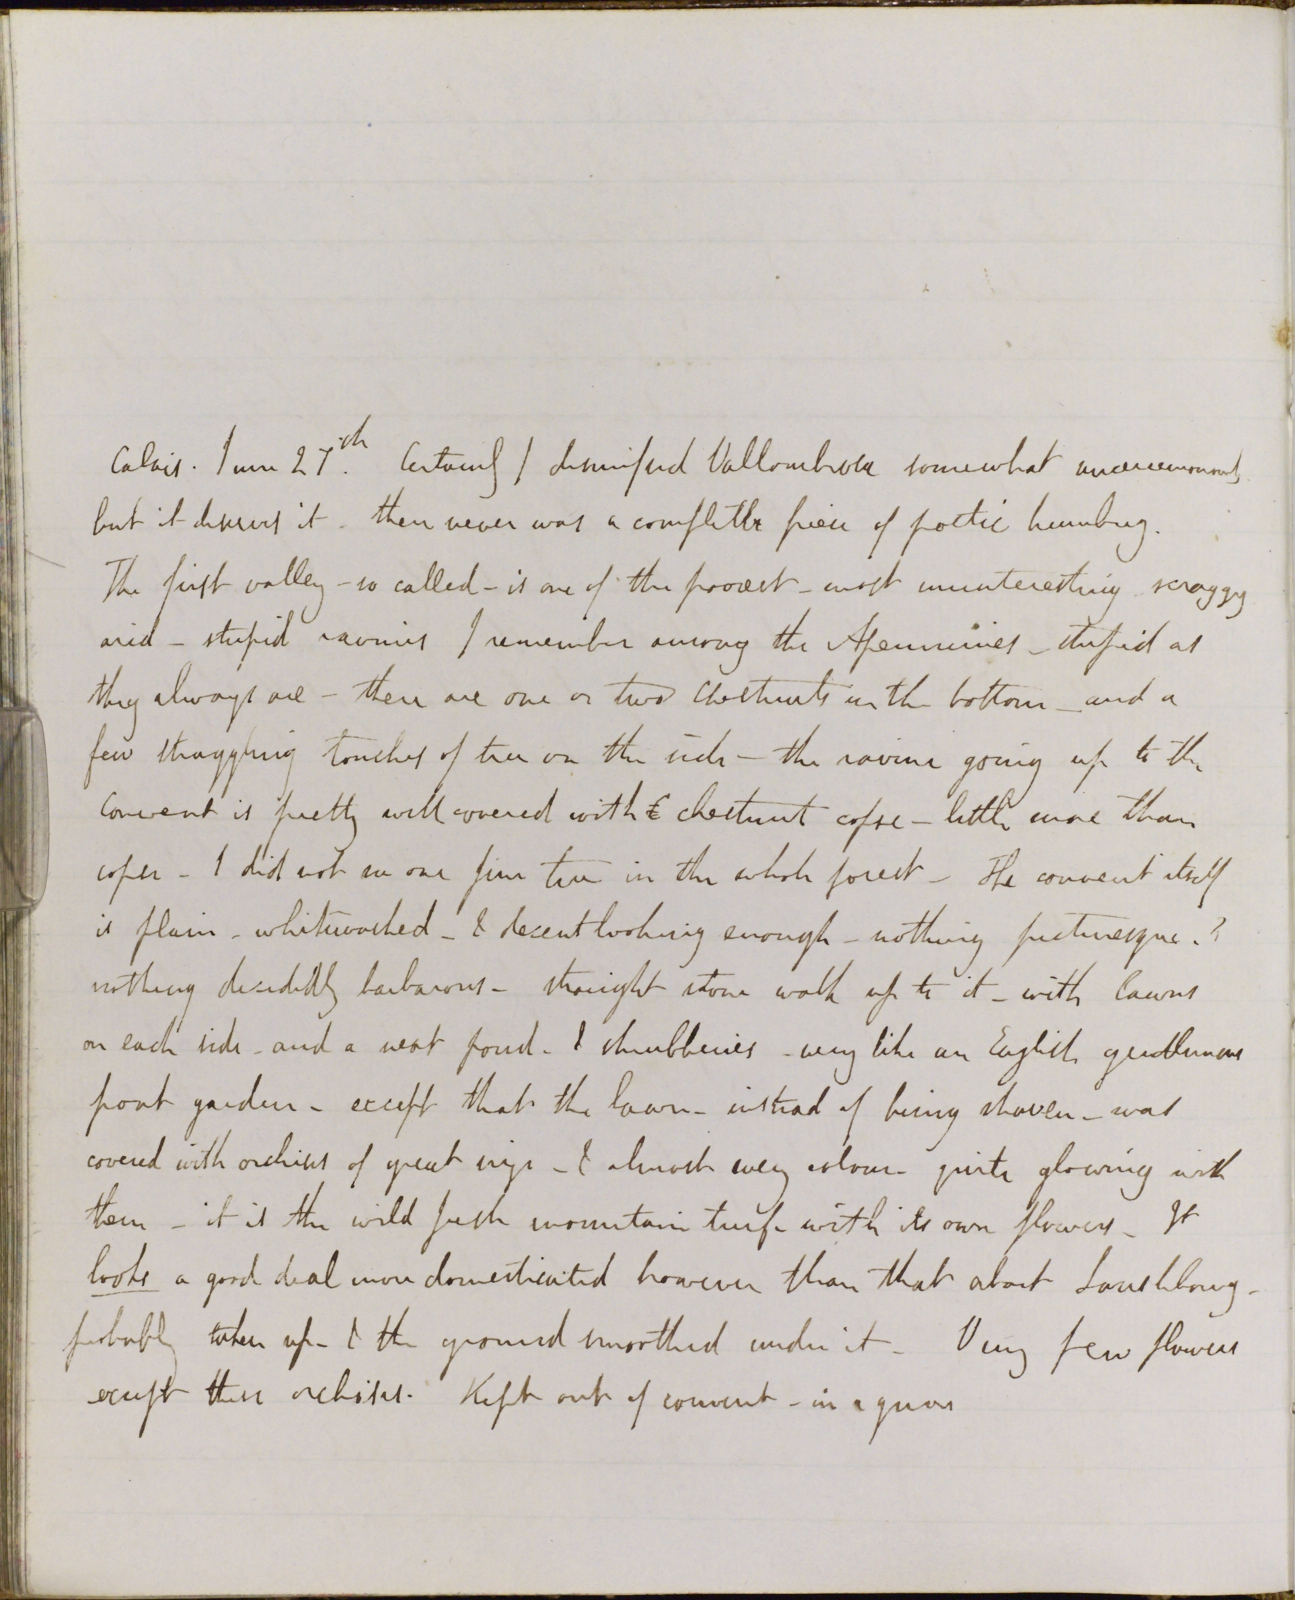 Calais. June 27.th Certainly I dismissed Vallombrosa somewhat unceremoniously
but it deserves it. there never was a completer piece of poetic humbug.
The first valley - so called - is one of the poorest - most uninteresting scraggy
arid - stupid ravines I remember among the Apennines - stupid as
they always are - there are one or two chestnuts in the bottom - and a
few straggling touches of tree on the side - the ravine going up to the
convent is pretty well covered with chestnut copse - little more than
copse - I did not see one fine tree in the whole forest - The convent itself
is plain - whitewashed - & decent looking enough - nothing picturesque.
nothing decidedly barbarous - straight stone walk up to it - with lawns
on each side - and a neat pond - & shrubberies - very like an English gentlemans
front garden - except that the lawn - instead of being shaven - was
covered with orchises of great size - & almost every colour - quite glowing with
them - it is the wild fresh mountain turf with its own flowers - It
looks a good deal more domesticated however than that about
probably taken up - & the ground smoothed under it - Very few flowers
except these orchises. Kept out of convent - in a